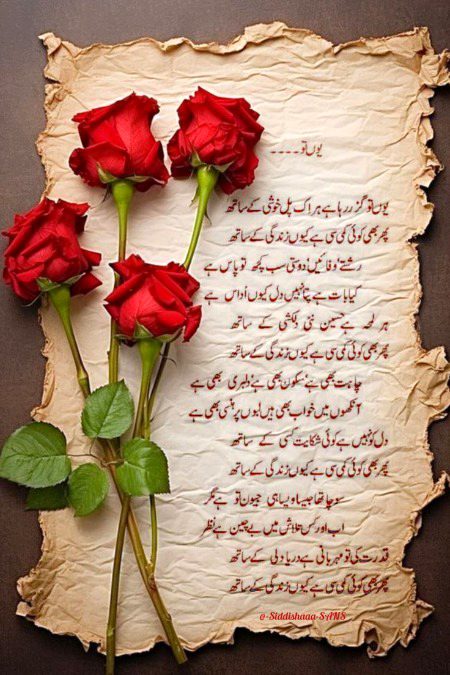 یوں تو ۔۔۔۔
یوں تو گزر رہا ہے ہر اک پل خوشی کے ساتھ
پھر بھی کوئی کمی سی ہے کیوں زندگی کے ساتھ
رشتے وفائیں دوستی سب کچھ تو پاس ہے
کیا بات ہے پتا نہیں دل کیوں اداس ہے
ہر لمحہ ہے حسین نئی دلکشی کے ساتھ
پھر بھی کوئی کمی سی ہے کیوں زندگی کے ساتھ
چاہت بھی ہے سکون بھی ہے دلبری بھی ہے
آنکھوں میں خواب بھی ہیں لبوں پر ہنسی بھی ہے
دل کو نہیں ہے کوئی شکایت کسی کے ساتھ
پھر بھی کوئی کمی سی ہے کیوں زندگی کے ساتھ
سوچا تھا جیسا ویسا ہی جیون تو ہے مگر
اب اور کس تلاش میں بے چین ہے نظر
قدرت کی تو مہربانی ہے دریا دلی کے ساتھ
پھر بھی کوئی کمی سی ہے کیوں زندگی کے ساتھ
@-Siddishaaa-SANS